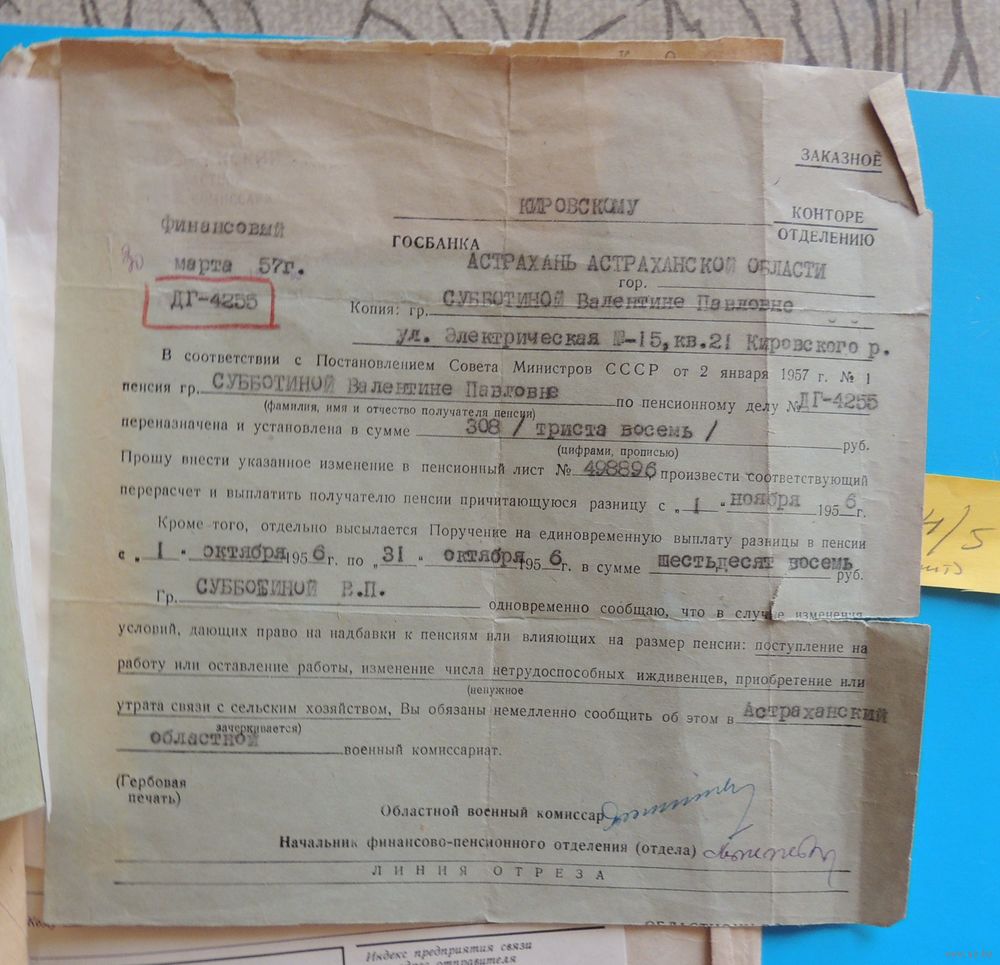 ЗАКАЗНОЕ
КИРОВСКОМУ
КОНТОРЕ
ОТДЕЛЕНИЮ
Финансовый
ГОСБАНКА
30 марта 57г.
АСТРАХАНЬ АСТРАХАНСКОЙ ОБЛАСТИ
гор.
ДГ-4255
Копия: гр. СУББОТИНОЙ Валентине Павловне
ул. Электрическая Ш-15, кв.21 Кировского р.
В соответствии с Постановлением Совета Министров СССР от 2 января 1957 г. № 1
пенсия гр. СУББОТИНОЙ Валентине Павловне по пенсионному делу № ДГ-4255
(фамилия, имя и отчество получателя пенсии)
переназначена и установлена в сумме 308 / триста восемь / руб.
(цифрами, прописью)
Прошу внести указанное изменение в пенсионный лист № 498896, произвести соответствующий
перерасчет и выплатить получателю пенсии причитающуюся разницу с „1" ноября 1956 г.
Кроме того, отдельно высылается Поручение на единовременную выплату разницы в пенсии
с „1" октября 1956 г. по „31" октября 1956 г. в сумме шестьдесят восемь руб.
Гр. СУББОТИНОЙ В.П. одновременно сообщаю, что в случае изменения
условий, дающих право на надбавки к пенсиям или влияющих на размер пенсии: поступление на
работу или оставление работы, изменение числа нетрудоспособных иждивенцев, приобретение или
(ненужное
утрата связи с сельским хозяйством, Вы обязаны немедленно сообщить об этом в Астраханский
зачеркивается)
областной военный комиссариат.
(Гербовая
печать)
Областной военный комиссар
Начальник финансово-пенсионного отделения (отдела)
ЛИНИЯ ОТРЕЗА
Индекс предприятия связи
отправителя